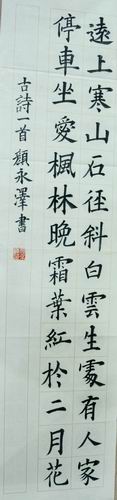 遠上寒山石径斜白雲生處有人家
停車坐愛楓林晚霜葉紅於二月花
古詩一首顧永澤書